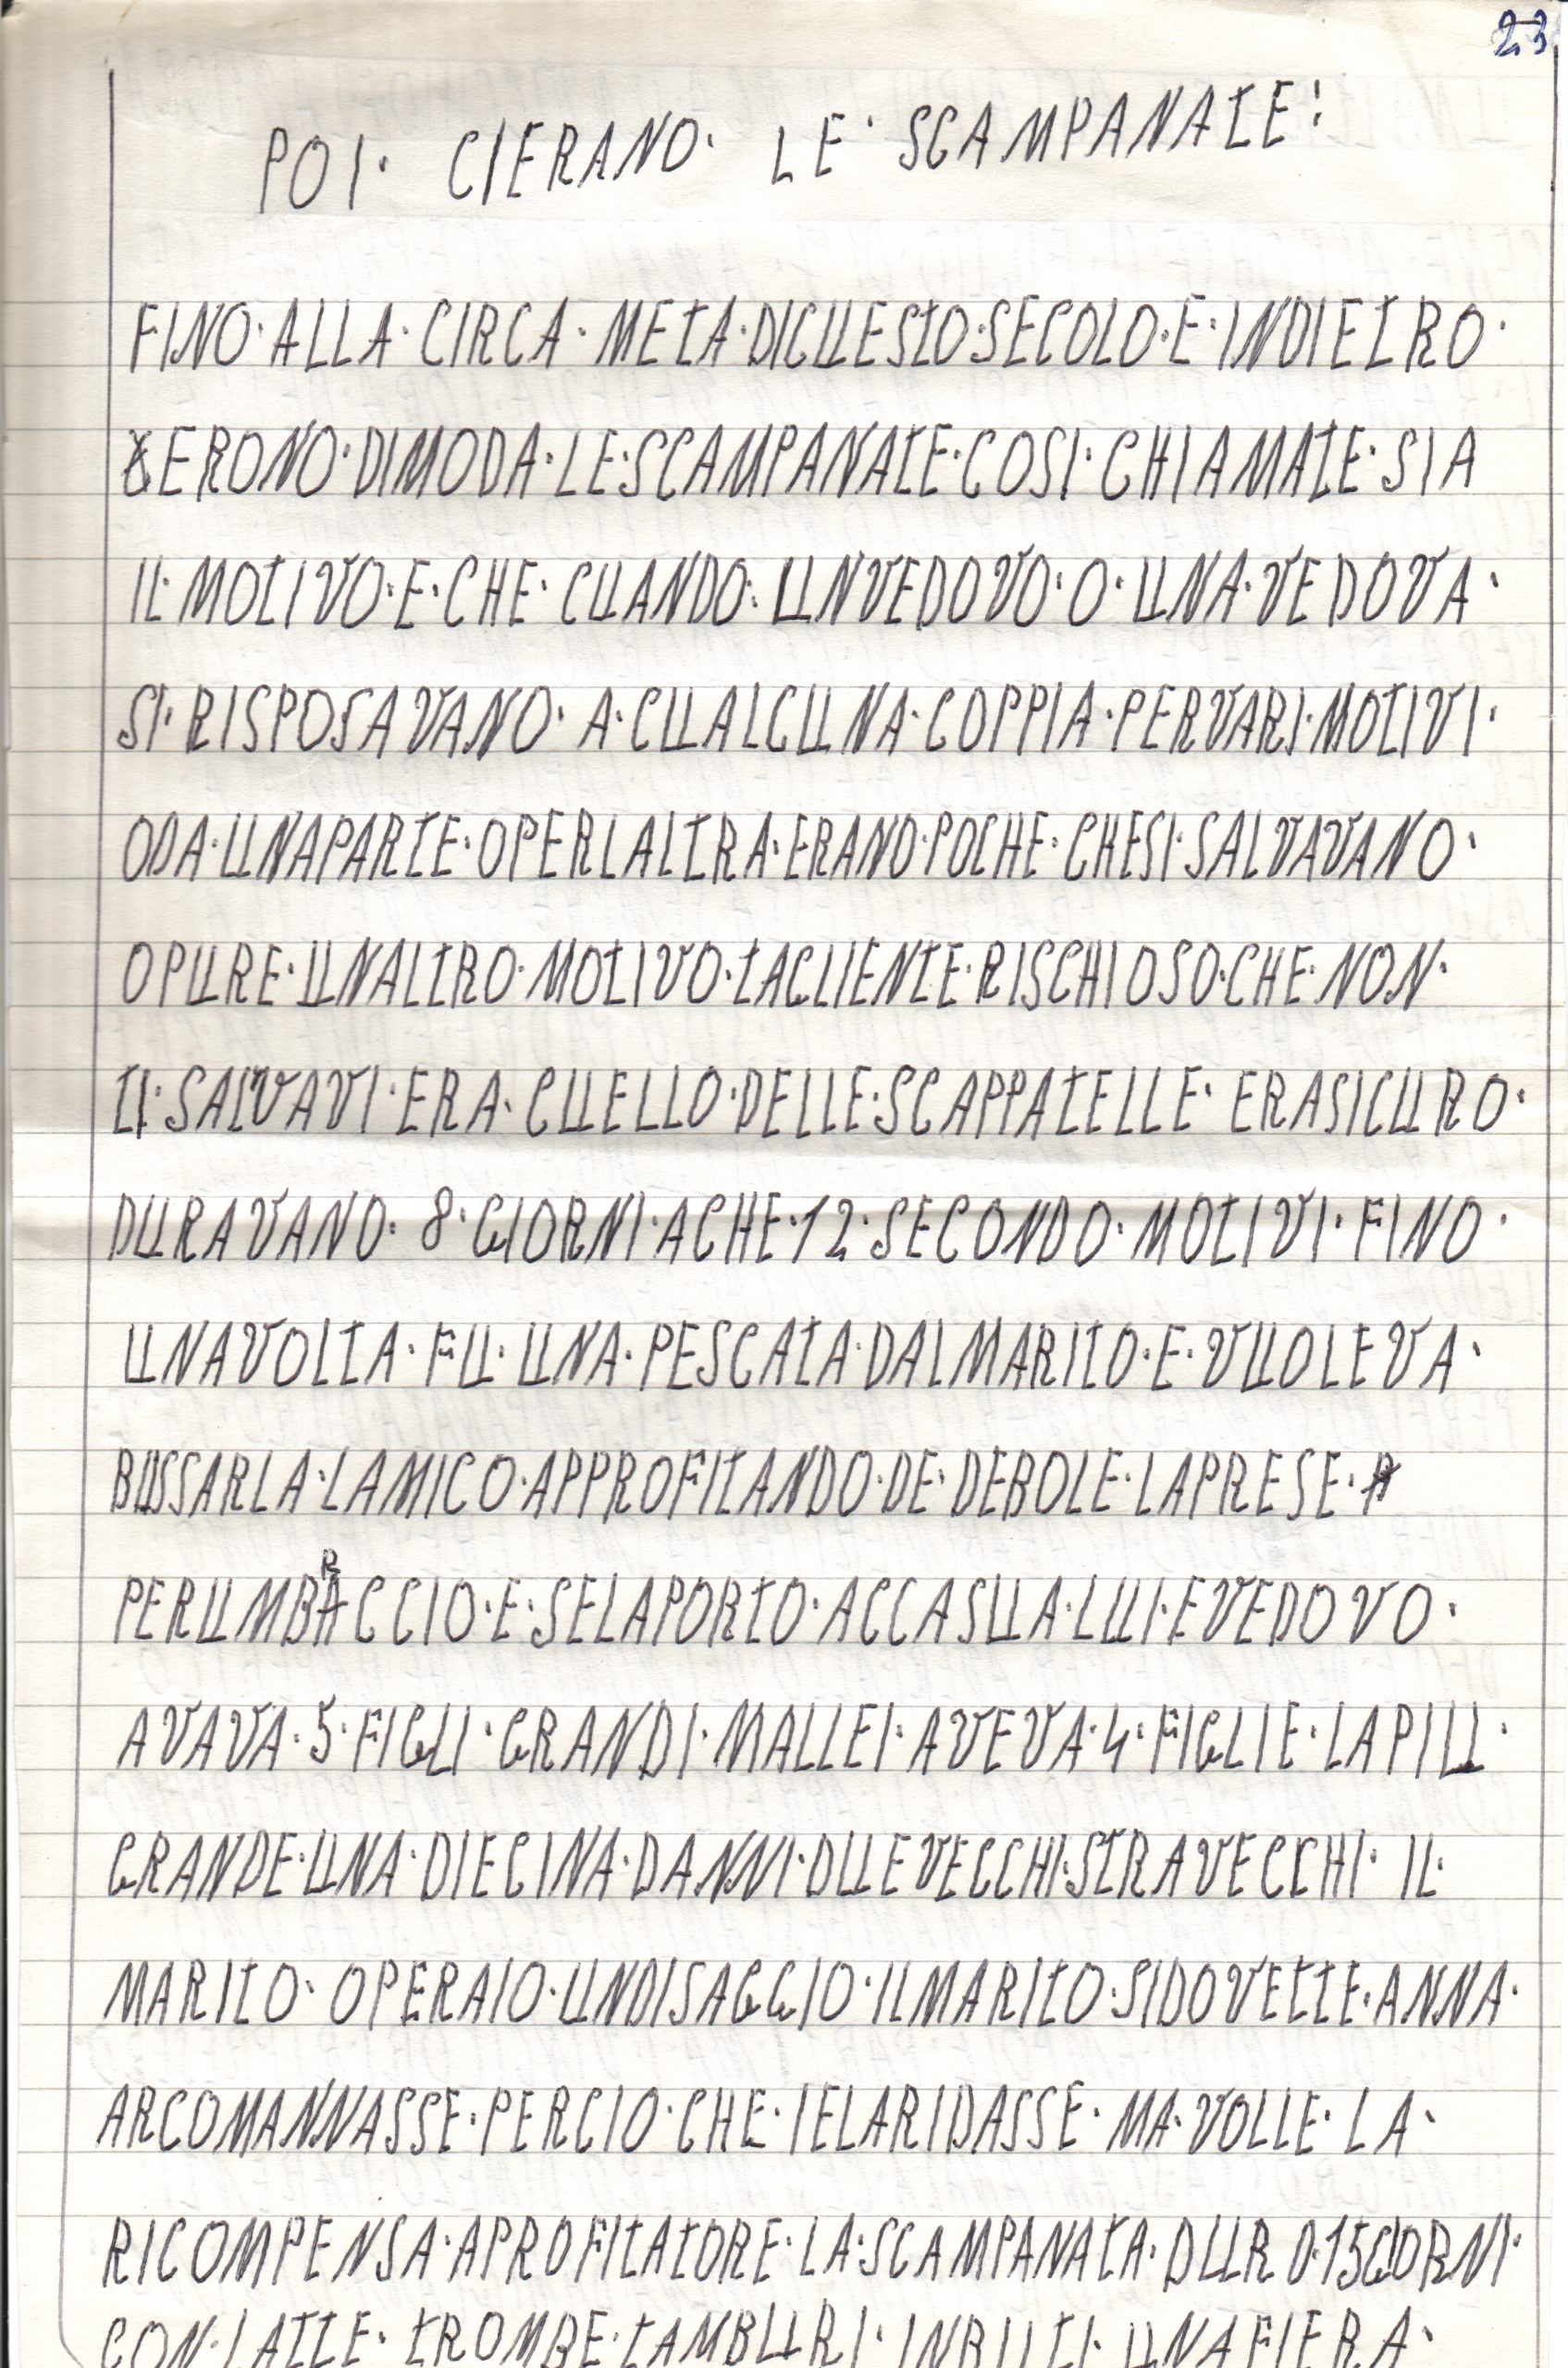 23
POI· CIERANO· LE· SCAMPANATE:
FINO·ALLA·CIRCA·META·DICUESTO·SECOLO·E·INDIETRO·
ERONO·DIMODA·LE·SCAMPANATE·COSI·CHIAMATE·SIA
IL·MOTIVO·E·CHE·CUANDO·UNVEDOVO·O·UNA·VEDOVA·
SI·RISPOSAVANO·A·CUALCUNA·COPPIA·PERVARI·MOTIVI·
ODA·UNAPARTE·OPERLALTRA·ERANO·POCHE·CHESI·SALVAVANO·
OPURE·UNALTRO·MOTIVO·TAGLIENTE·RISCHIOSO·CHE·NON·
TI·SALVAVI·ERA·CUELLO·DELLE·SCAPPATELLE·ERASICURO·
DURAVANO·8·GIORNI·ACHE·12·SECONDO·MOTIVI·FINO·
UNAVOLTA·FU·UNA·PESCATA·DALMARITO·E·VUOLEVA·
BUSSARLA·LAMICO·APPROFITANDO·DE·DEBOLE·LAPRESE·
PERUMBRACCIO·E·SELAPORTO·ACCASUA·LUI·EVEDOVO·
AVAVA·5·FIGLI·GRANDI·MALLEI·AVEVA·4·FIGLIE·LAPIU·
GRANDE·UNA·DIECINA·DANNI·DUEVECCHI·STRAVECCHI·IL·
MARITO·OPERAIO·UNDISAGGIO·ILMARITO·SIDOVETTE·ANNA·
ARCOMANNASSE·PERCIO·CHE·IELARIDASSE·MA·VOLLE·LA·
RICOMPENSA·APROFITATORE·LA·SCAMPANATA·DURO·15GIORNI·
CON·LATTE·TROMBE·TAMBURI·INBUTI·UNAFIERA·